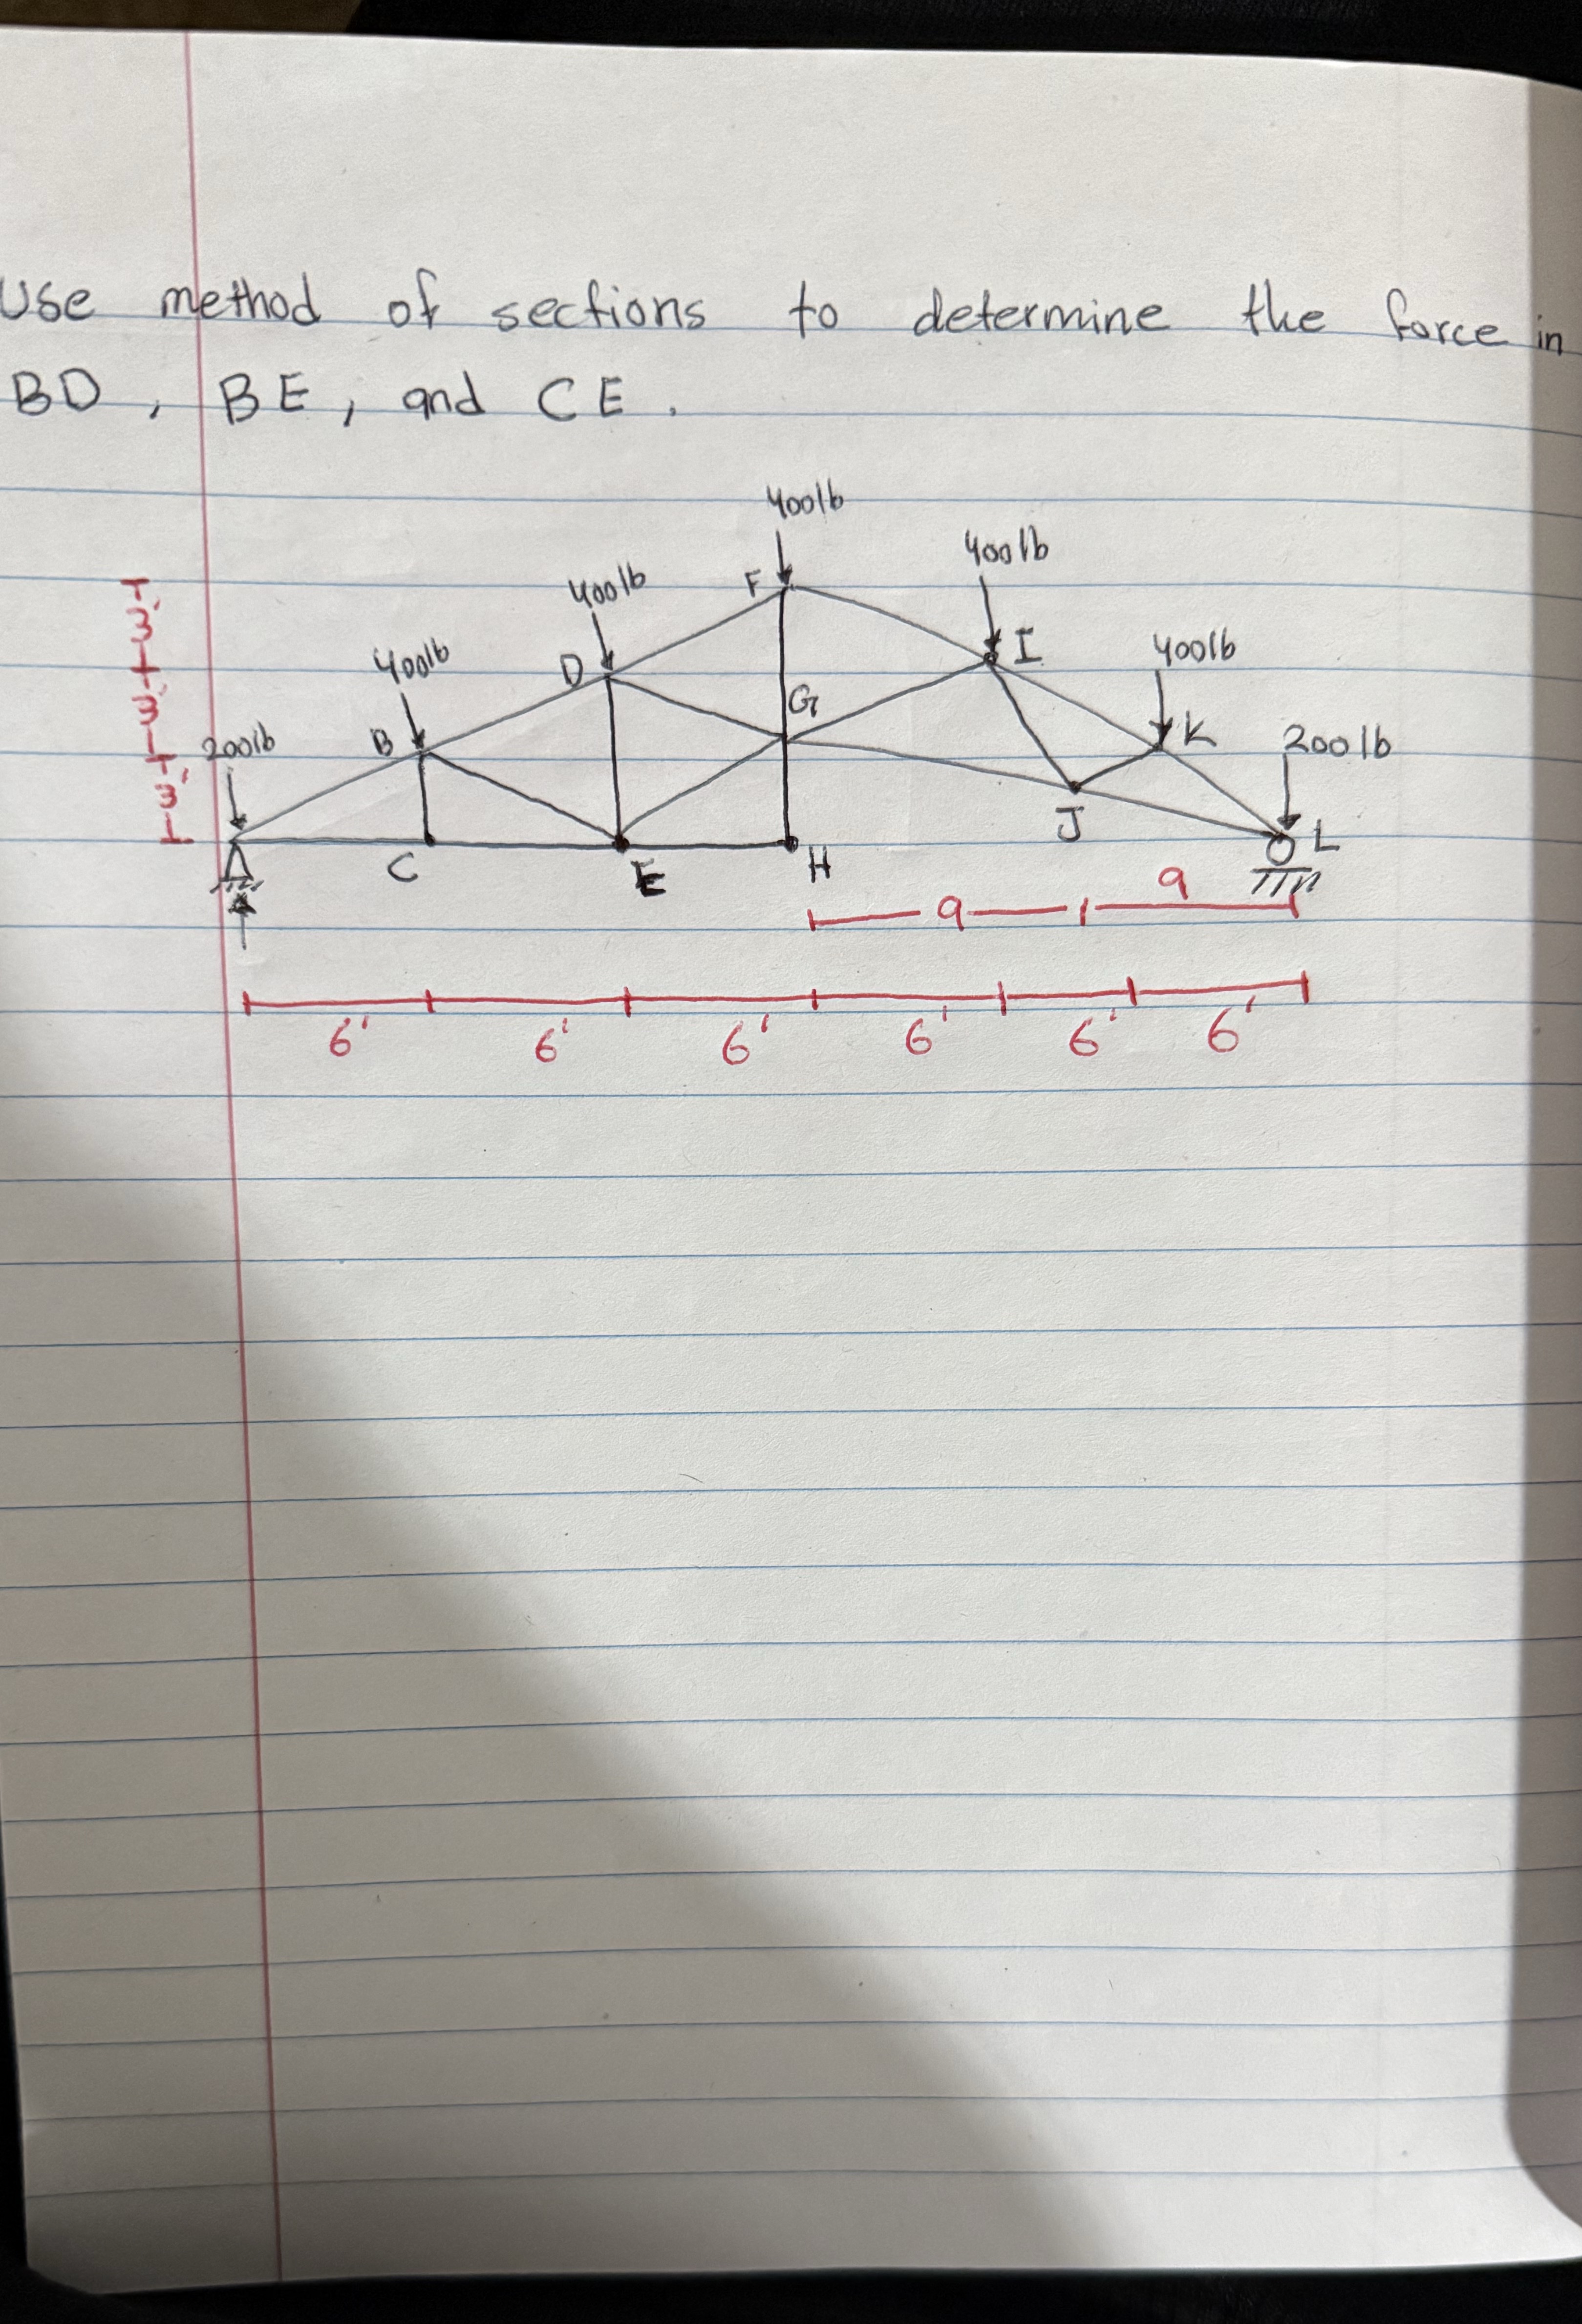 Use method of sections to determine the force in
BD, BE, and CE.
400lb
400lb
400lb F
400lb
D I
400lb
400lb
G
200lb
B K
200lb
3'
3'
3'
A C E H J L
9 9
6' 6' 6' 6' 6' 6'